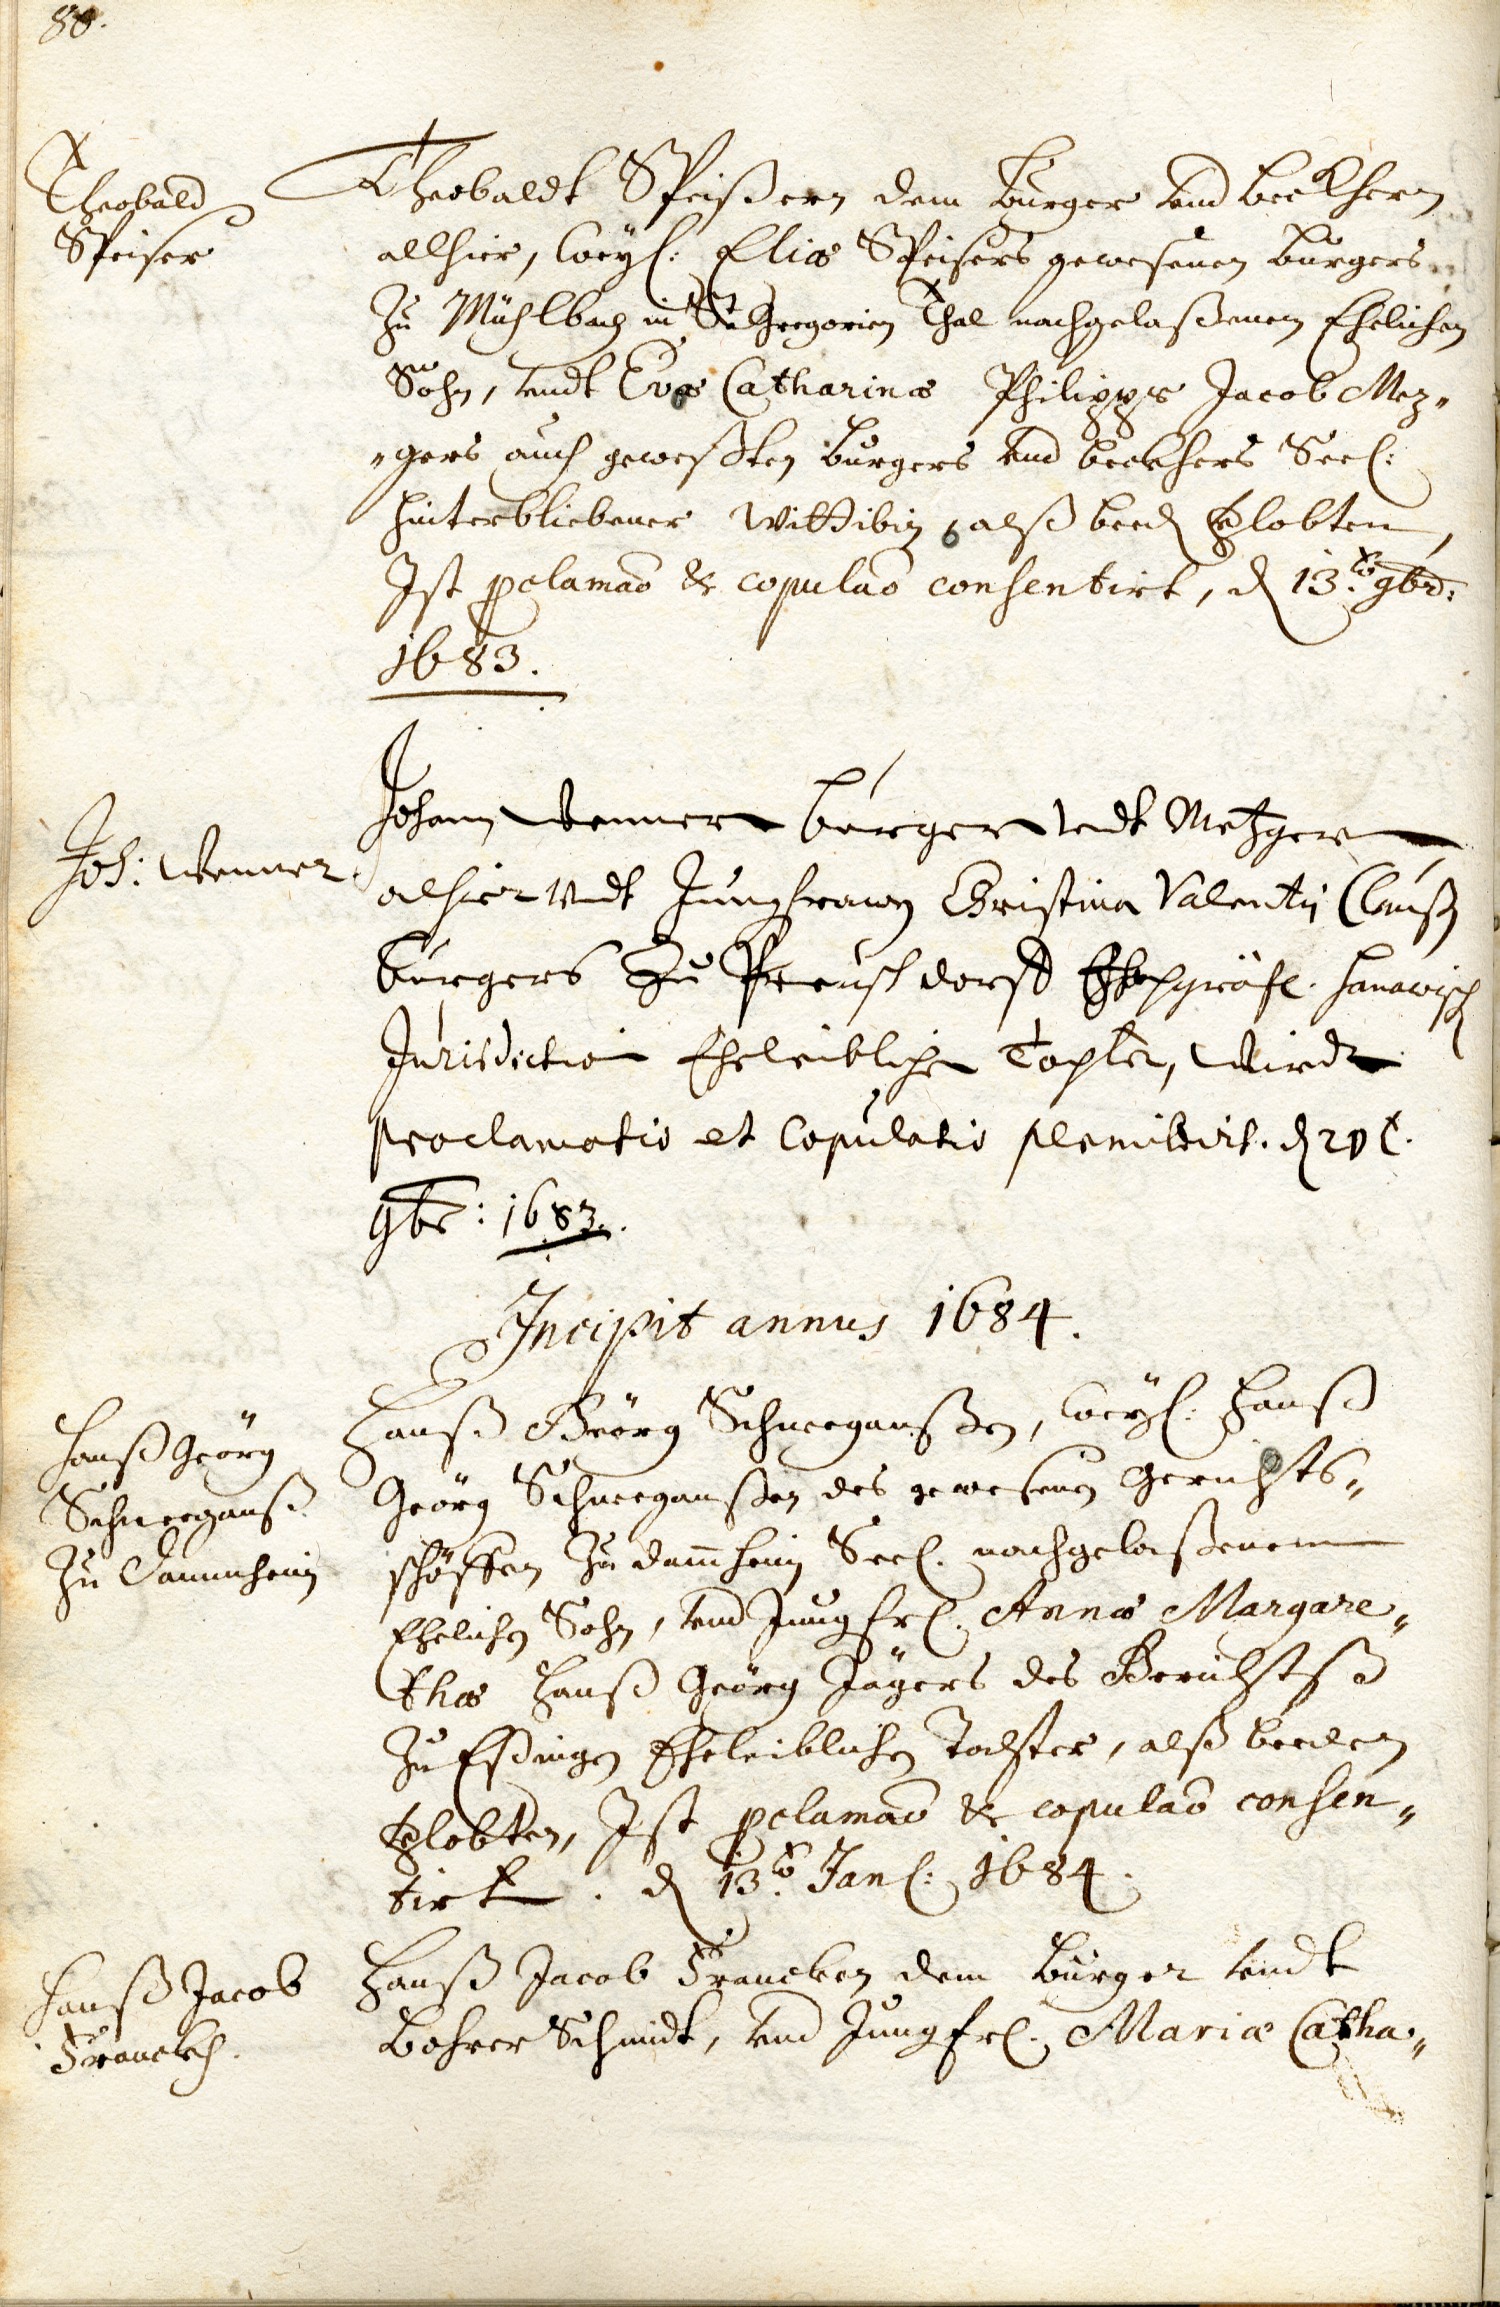 80.
Theobald
Speiser
Theobaldt Speißern dem burger vnd beckhern
allhier, weyl: Eliæ Speisers gewesenen burgers
zu Mühlbach in St Gregorien Thal nachgelaßenen Ehelichen
Sohn, vndt Evæ Catharinæ Philipps Jacob Mez„
„gers auch geweßten burgers vnd beckhers Seel:
hinterbliebener Wittibin, alß beed v̈lobten,
Ist p̱clamaõ & copulaõ consentirt, d 13.to 9br̃:
1683.
Joh: Wenner
Johann Wenner burger vndt Metzger
alhier vndt Jungfrawen Christina Valentij Clauß
burgers zu Preuschdorff gräfl. hanawisch
Jurisdiction Eheleibliche Tochter, wirdt
proclamatio et Copulatio
9br: 1683.
Incipit annus 1684.
Hanß Geörg
Schneeganß
zu Dammheim
Hanß Geörg Schneeganßen, weyl: Hanß
Geörg Schneeganßen des gewesenen Gerichts„
schöffen zu Dam̄heim Seel. nachgelaßenem
Ehelichen Sohn, vnd Jungfrl. Annæ Margare„
thæ Hanß Geörg Jägers des Gerichtß
zu Eßingen Eheleiblichen Tochter, alß beeden
v̈lobten, Ist p̱clamaõ & copulaõ consen„
tirt. d 13.to Janl: 1684.
Hanß Jacob
Franckh.
Hanß Jacob Francken dem burger vndt
Bohrer Schmidt, vnd Jungfrl. Mariæ Catha„